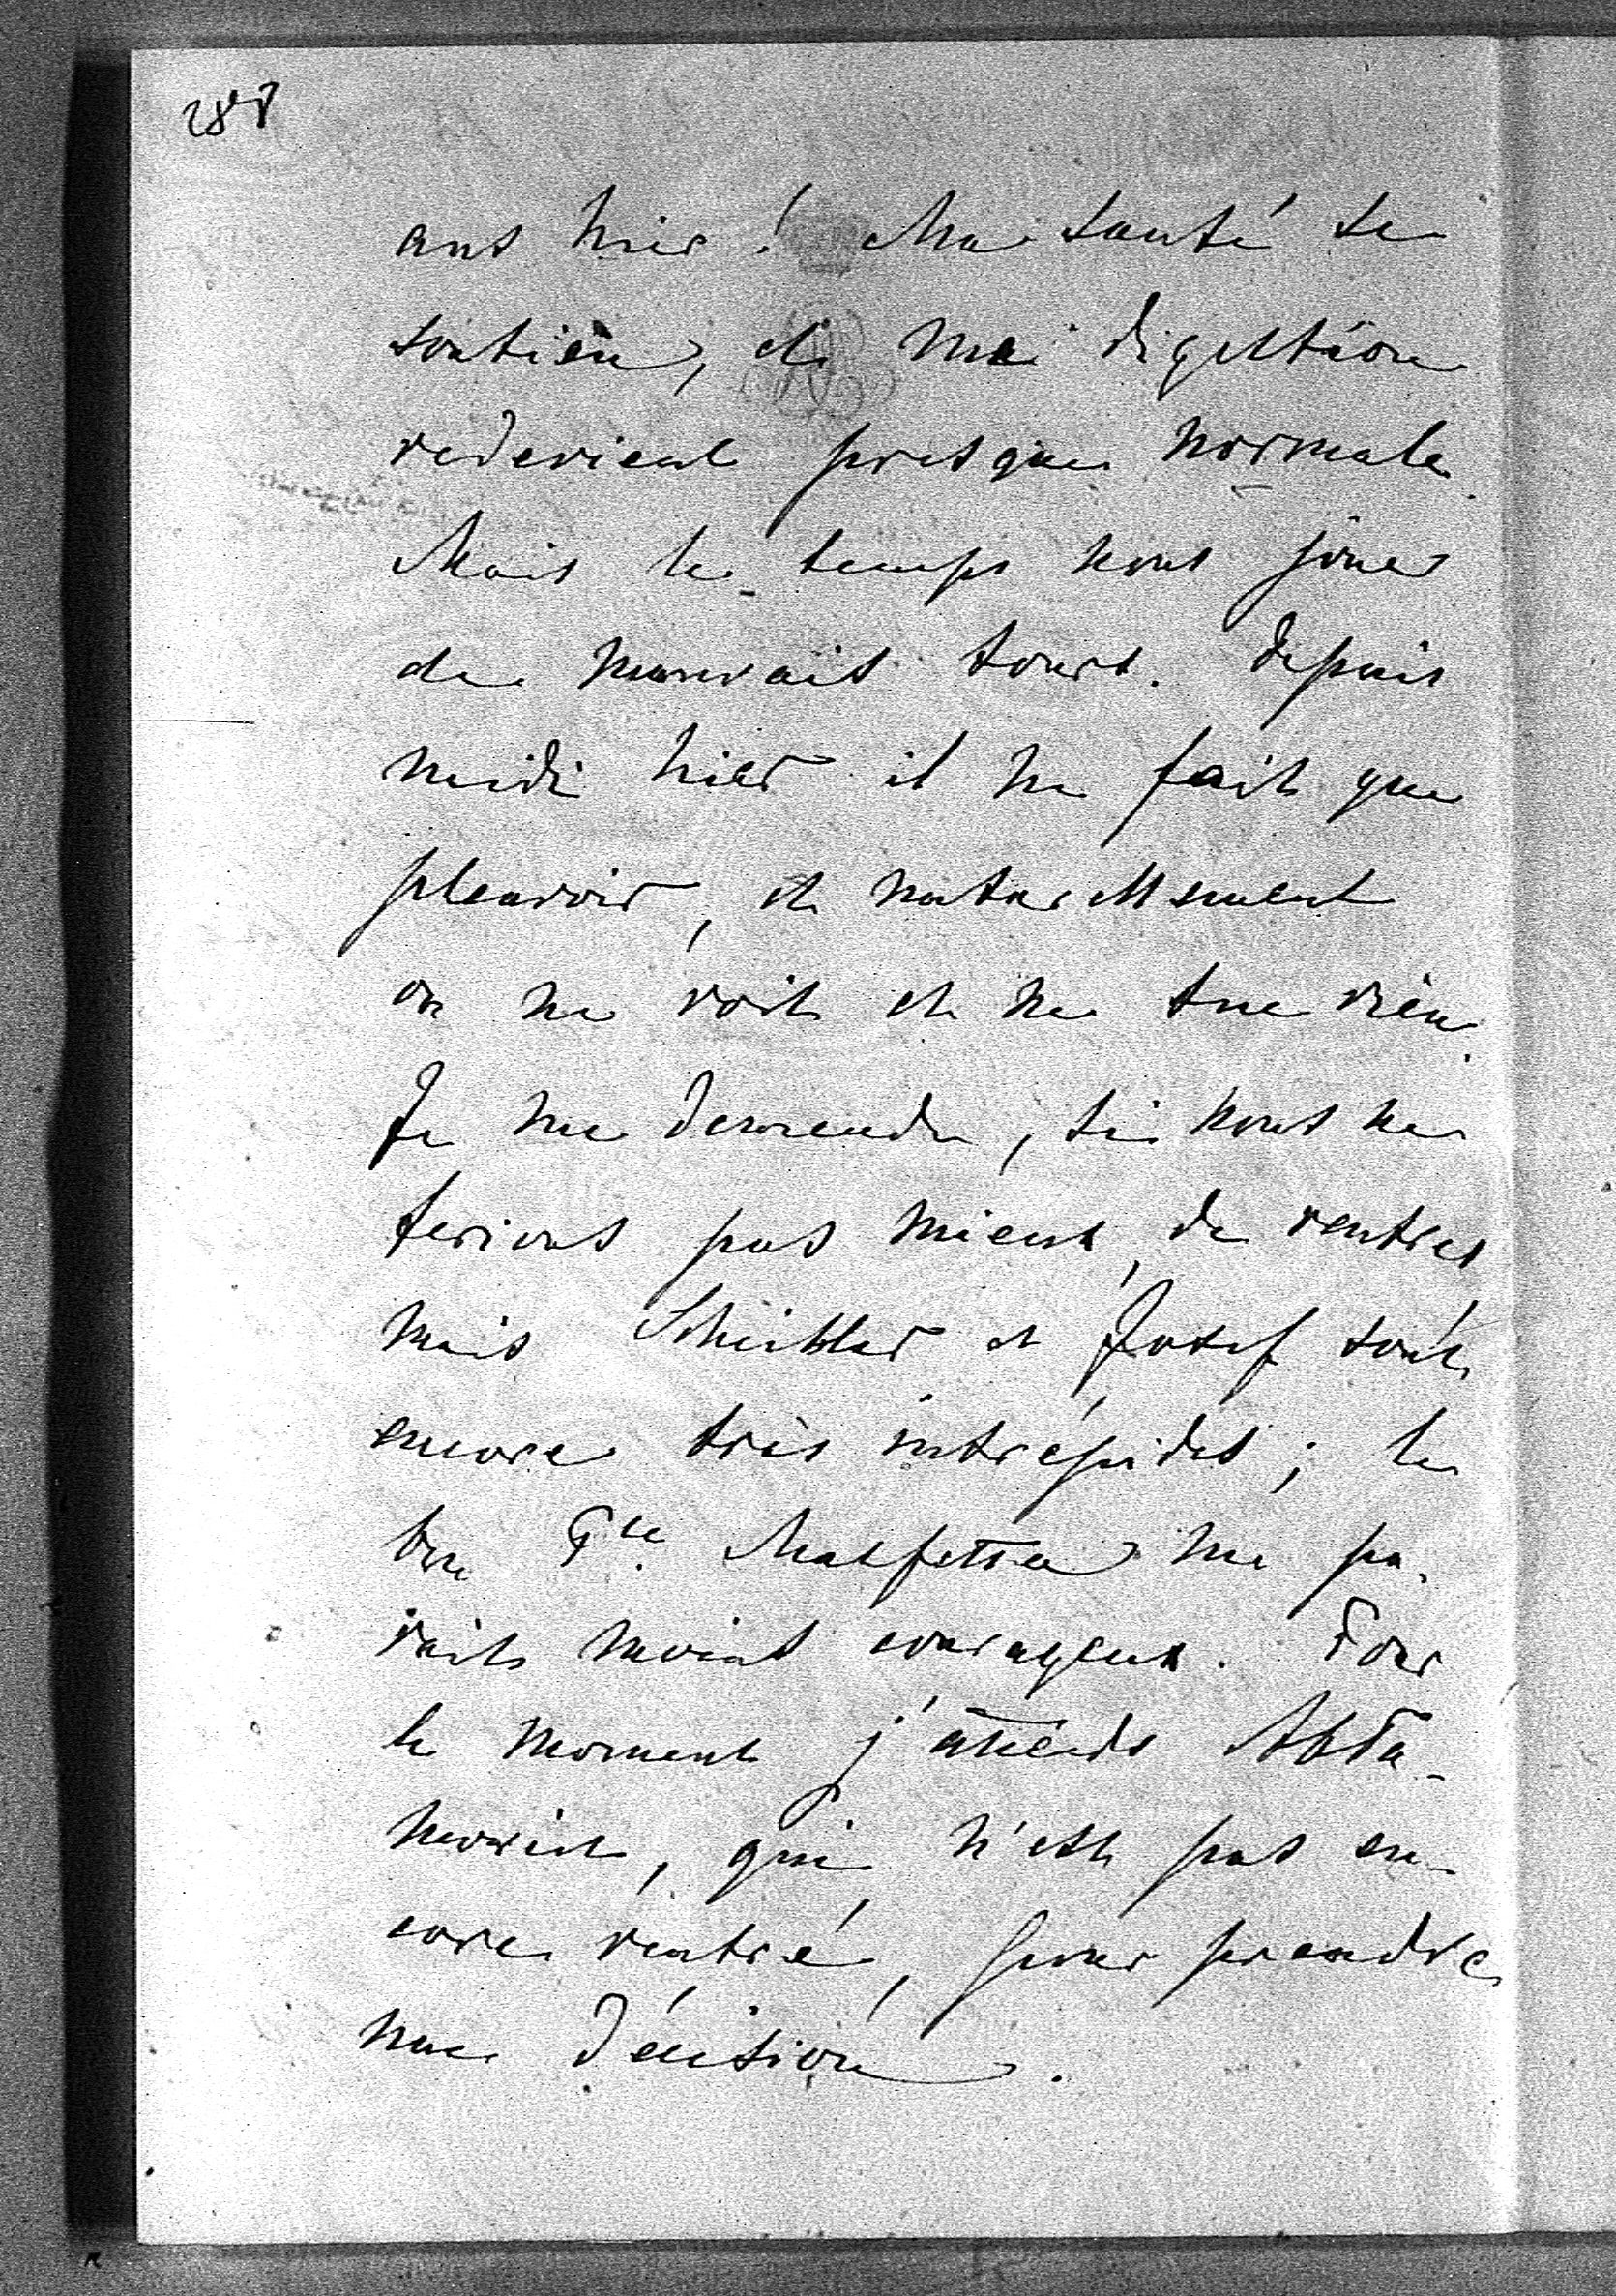 ans hier! Ma santé se
soutien, et ma digestion
redevient presque normale.
Mais le temps nous joue
de mauvais tours. Depuis
midi hier il ne fait que
pleuvoir, et naturellement
on ne voit et ne tue rien.
Je me demande, si nous ne
ferions pas mieux de rentrer
mais Scheibler et Josef sont
encore très intrépides; le
bon Malfetta me pa-
rait moins courageux. Pour
le moment j'attends
qui n'est pas en-
core rentré, pour prendre
une décision.